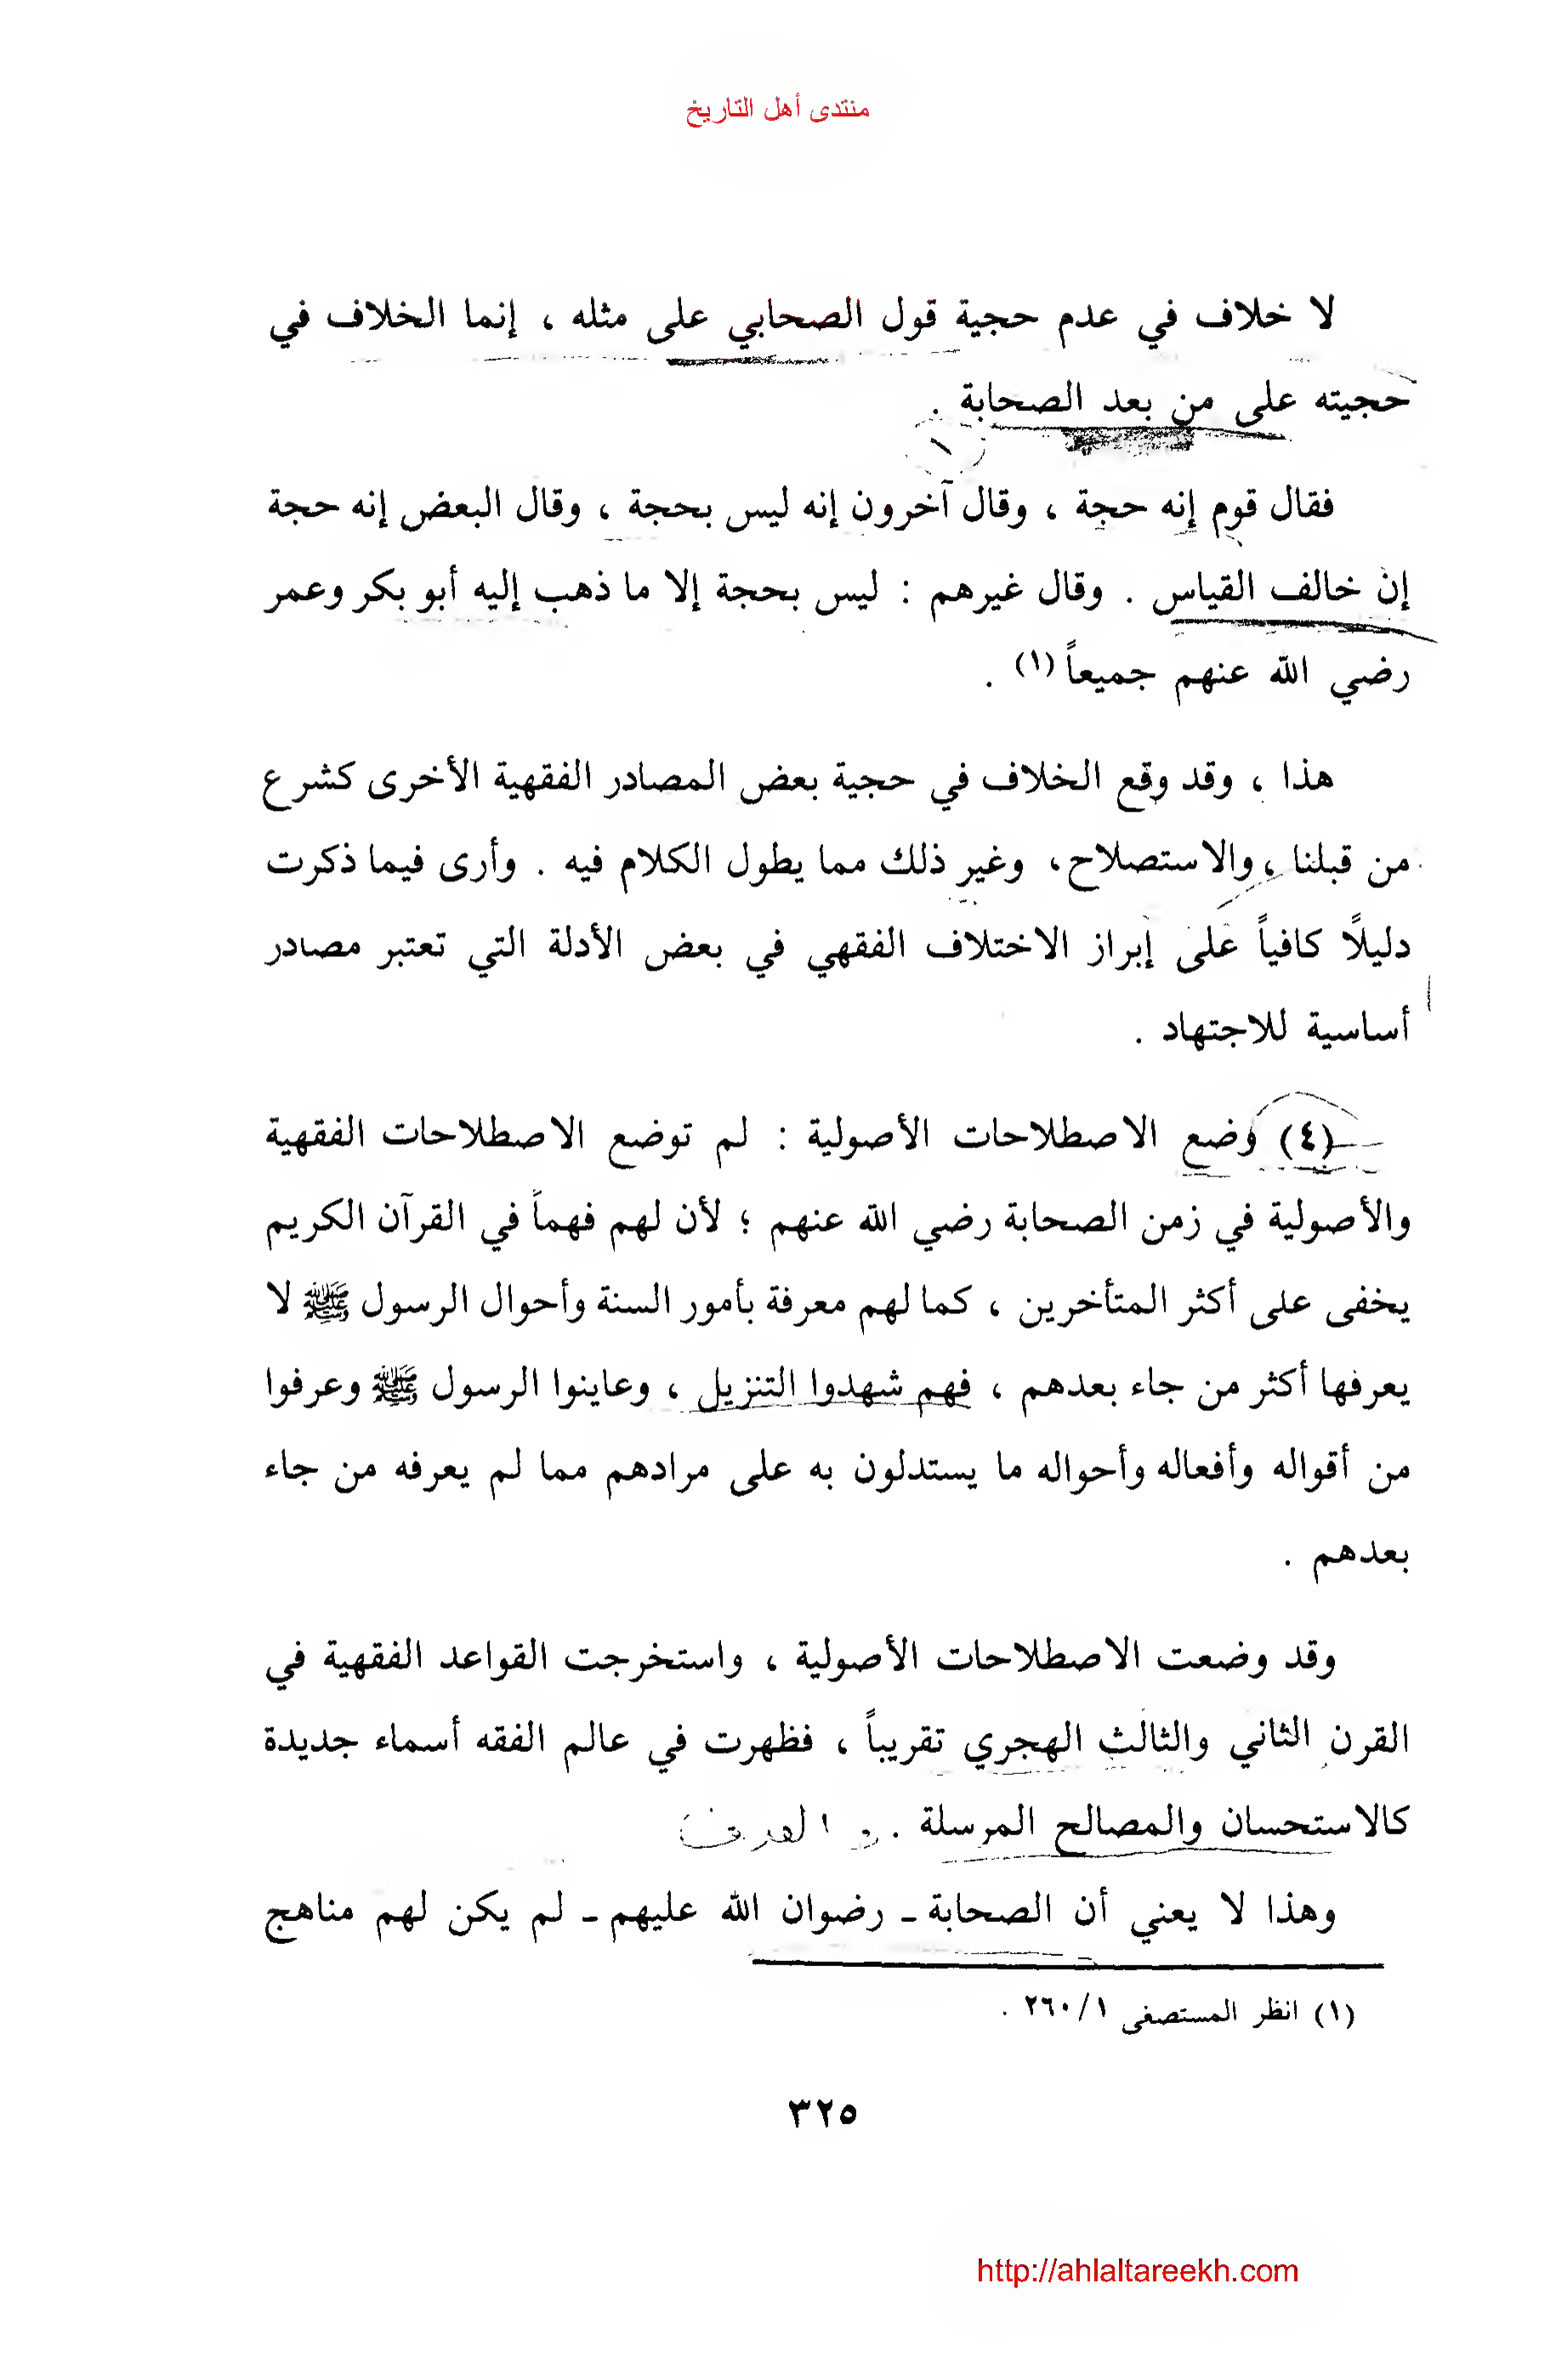 منتدى أهل التاريخ
لا خلاف في عدم حجية قول الصحابي على مثله ، إنما الخلاف في
حجيته على من بعد الصحابة .
١
فقال قوم إنه حجة ، وقال آخرون إنه ليس بحجة ، وقال البعض إنه حجة
إن خالف القياس . وقال غيرهم : ليس بحجة إلا ما ذهب إليه أبو بكر وعمر
رضي الله عنهم جميعاً (١) .
هذا ، وقد وقع الخلاف في حجية بعض المصادر الفقهية الأخرى كشرع
من قبلنا ، والاستصلاح ، وغير ذلك مما يطول الكلام فيه . وأرى فيما ذكرت
دليلاً كافياً على إبراز الاختلاف الفقهي في بعض الأدلة التي تعتبر مصادر
أساسية للاجتهاد .
(٤) وضع الاصطلاحات الأصولية : لم توضع الاصطلاحات الفقهية
والأصولية في زمن الصحابة رضي الله عنهم ؛ لأن لهم فهماً في القرآن الكريم
يخفى على أكثر المتأخرين ، كما لهم معرفة بأمور السنة وأحوال الرسول ﷺ لا
يعرفها أكثر من جاء بعدهم ، فهم شهدوا التنزيل ، وعاينوا الرسول ﷺ وعرفوا
من أقواله وأفعاله وأحواله ما يستدلون به على مرادهم مما لم يعرفه من جاء
بعدهم .
وقد وضعت الاصطلاحات الأصولية ، واستخرجت القواعد الفقهية في
القرن الثاني والثالث الهجري تقريباً ، فظهرت في عالم الفقه أسماء جديدة
كالاستحسان والمصالح المرسلة . والعرف
وهذا لا يعني أن الصحابة - رضوان الله عليهم - لم يكن لهم مناهج
(١) انظر المستصفى ٢٦٠/١ .
٣٢٥
http://ahlaltareekh.com